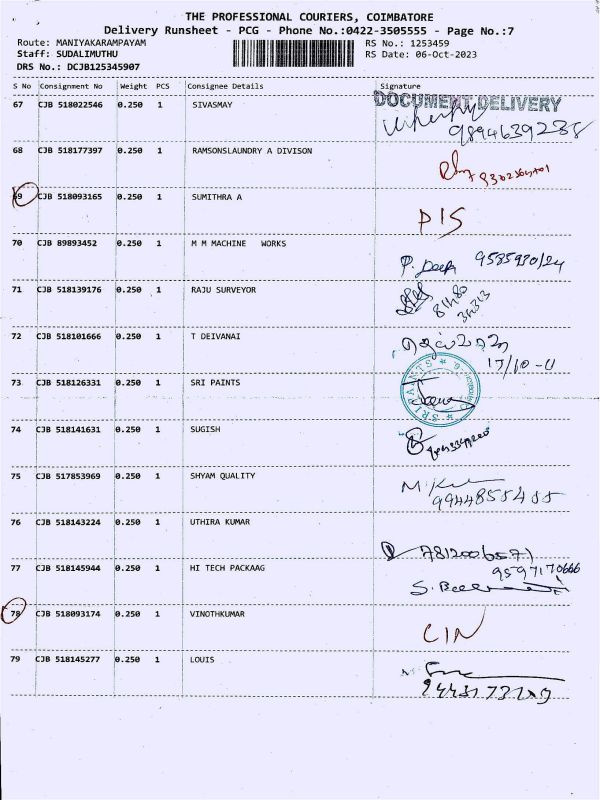 THE PROFESSIONAL COURIERS, COIMBATORE
Delivery Runsheet - PCG - Phone No.:0422-3505555 - Page No.:7
Route: MANIYAKARAMPAYAM RS No.: 1253459
Staff: SUDALIMUTHU RS Date: 06-Oct-2023
DRS No.: DCJB125345907
S No Consignment No Weight PCS Consignee Details Signature
67 CJB 518022546 0.250 1 SIVASMAY DOCUMENT DELIVERY
9894639238
68 CJB 518177397 0.250 1 RAMSONSLAUNDRY A DIVISON
69 CJB 518093165 0.250 1 SUMITHRA A
DIS
70 CJB 89893452 0.250 1 M M MACHINE WORKS
P. Deepa
71 CJB 518139176 0.250 1 RAJU SURVEYOR
72 CJB 518101666 0.250 1 T DEIVANAI
73 CJB 518126331 0.250 1 SRI PAINTS
SRI PAINTS
74 CJB 518141631 0.250 1 SUGISH
75 CJB 517853969 0.250 1 SHYAM QUALITY
76 CJB 518143224 0.250 1 UTHIRA KUMAR
7812006571
77 CJB 518145944 0.250 1 HI TECH PACKAAG
9597170666
78 CJB 518093174 0.250 1 VINOTHKUMAR
CIN
79 CJB 518145277 0.250 1 LOUIS